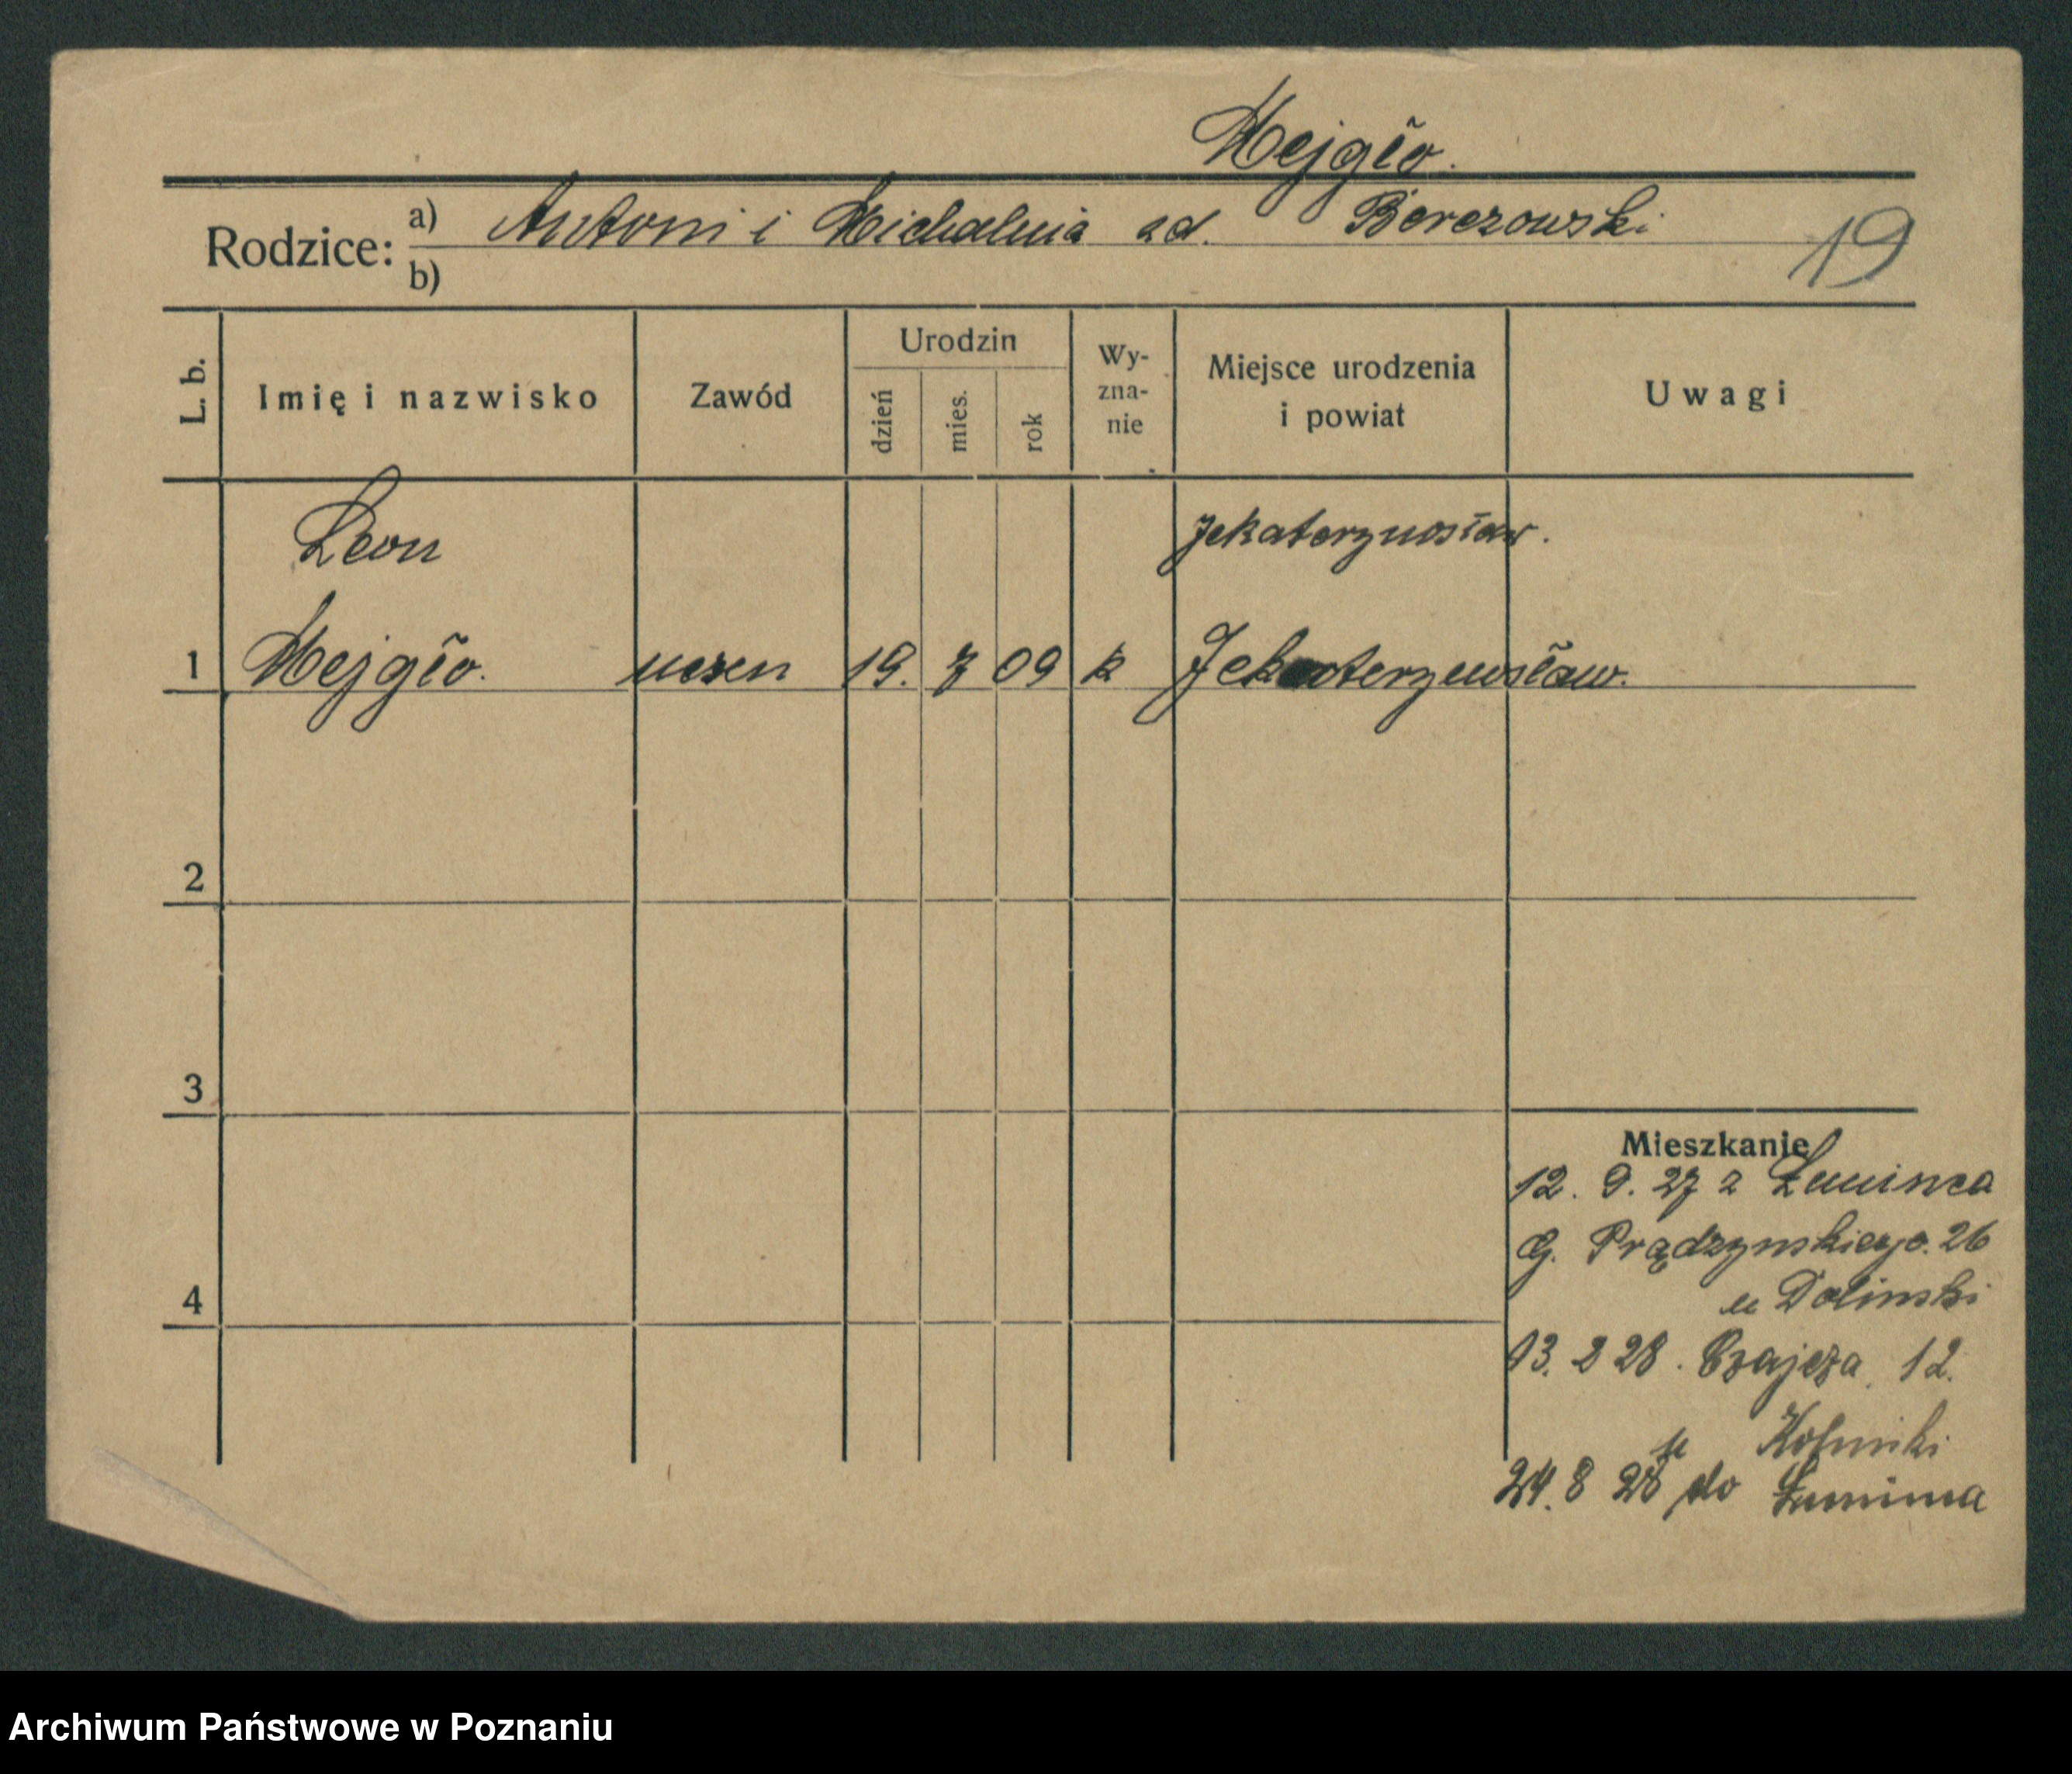 Mejgło.
Rodzice: a) Antoni i Michalina zd. Berezowski
b)
19
L. b.
Imię i nazwisko
Zawód
Urodzin
dzień
mies.
rok
Wy-
zna-
nie
Miejsce urodzenia
i powiat
Uwagi
Leon
Jekaterynosław.
1 Mejgło. uczen 19. 7 09 k Jekaterynosław.
2
3
4
Mieszkanie
12. 9. 27 z
G. Prądzynskiego. 26
u Dolinski
13. 2 28. Czajcza 12.
u
24. 8 28 do
Archiwum Państwowe w Poznaniu